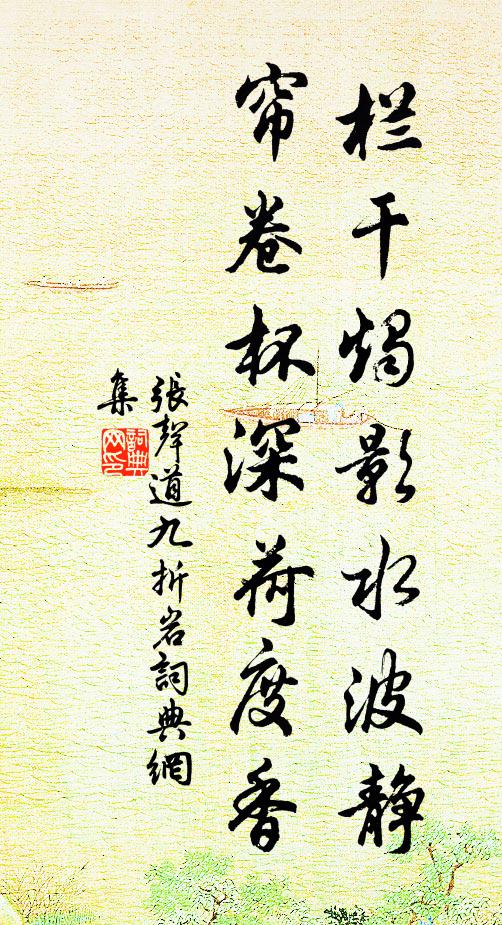 栏干烛影水波静
帘卷杯深荷度香
張聲道九折岩詞典網
集
詞典
网印